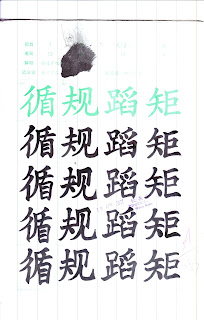 循规蹈矩
循规蹈矩
循规蹈矩
循规蹈矩
循规蹈矩